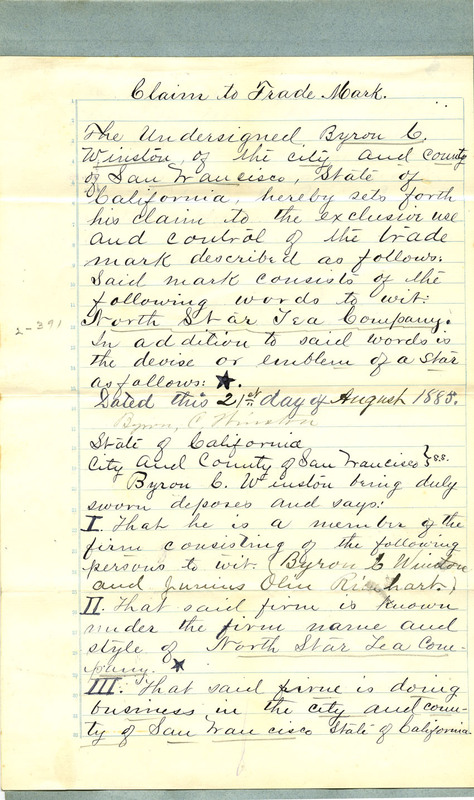 Claim to Trade Mark.
The Undersigned Byron C.
Winston, of the city and county
of San Francisco, State of
California, hereby sets forth
his claim to the exclusive use
and control of the trade
mark described as follows:
Said mark consists of the
following words to wit:
North Star Tea Company.
2-391
In addition to said words is
the devise or emblem of a star
as follows: ★.
Dated this 21st day of August 1885.
Byron, C Winston
State of California
City and County of San Francisco } ss.
Byron C. Winston being duly
sworn deposes and says:
I. That he is a member of the
firm consisting of the following
persons to wit. (Byron C Winston
and Junius Olin Rinehart.)
II. That said firm is known
under the firm name and
style of North Star Tea Com-
pany. ★
III. That said firme is doing
business in the city and coun-
ty of San Francisco State of California.